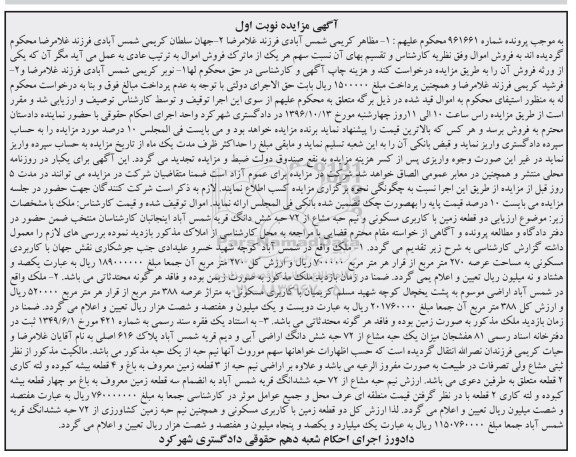 آگهی مزایده نوبت اول
به موجب پرونده شماره ۹۶۱۶۶۱ محکوم علیهم : ۱- مظاهر کریمی شمس آبادی فرزند غلامرضا ۲-جهان سلطان کریمی شمس آبادی فرزند غلامرضا محکوم
گردیده اند به فروش اموال وفق نظریه کارشناس و تقسیم بهای آن نسبت سهم هر یک از ماترک فروش اموال به ترتیب عادی به عمل می آید مگر آن که یکی
از ورثه فروش آن را به طریق مزایده درخواست کند و هزینه چاپ آگهی و کارشناسی در حق محکوم لها۱- نوبر کریمی شمس آبادی فرزند غلامرضا و۲-
فرشید کریمی فرزند غلامرضا و همچنین پرداخت مبلغ ۱۵۰۰۰۰۰ ریال بابت حق الاجرای دولتی با توجه به عدم پرداخت مبالغ فوق و بنا به درخواست محکوم
له به منظور استیفای محکوم به اموال قید شده در ذیل برگه متعلق به محکوم علیهم از سوی این اجرا توقیف و توسط کارشناس توصیف و ارزیابی شد و مقرر
است از طریق مزایده راس ساعت ۱۰ الی ۱۱ روز چهارشنبه مورخ ۱۳۹۶/۱۰/۱۳ در دادگستری شهرکرد واحد اجرای احکام حقوقی با حضور نماینده دادستان
محترم به فروش برسد و هر کس که بالاترین قیمت را پیشنهاد نماید برنده مزایده خواهد بود و می بایست فی المجلس ۱۰ درصد مورد مزایده را به حساب
سپرده دادگستری واریز نماید و قبض بانکی آن را به این شعبه تسلیم نماید و مابقی مبلغ را حداکثر ظرف مدت یک ماه از تاریخ مزایده به حساب سپرده واریز
نماید در غیر این صورت وجوه واریزی پس از کسر هزینه مزایده به نفع صندوق دولت ضبط و مزایده تجدید می گردد. این آگهی برای یکبار در روزنامه
محلی منتشر و همچنین در معابر عمومی الصاق خواهد شد شرکت در مزایده برای عموم آزاد است ضمنا متقاضیان شرکت در مزایده می توانند در مدت ۵
روز قبل از مزایده از طریق این اجرا نسبت به چگونگی نحوه برگزاری مزایده کسب اطلاع نمایند. لازم به ذکر است شرکت کنندگان جهت حضور در جلسه
مزایده می بایست ۱۰ درصد قیمت پایه را بهصورت چک تضمین شده بانکی فی المجلس ارائه نماید. اموال توقیف شده و قیمت کارشناس: ملک با مشخصات
زیر: موضوع ارزیابی دو قطعه زمین با کاربری مسکونی و نیم حبه مشاع از ۷۲ حبه شش دانگ قریه شمس آباد اینجانبان کارشناسان منتخب ضمن حضور در
دفتر دادگاه و مطالعه پرونده و آگاهی از خواسته مقام محترم قضایی با مراجعه به محل کارشناسی از املاک مذکور بازدید نموده بررسی های لازم را معمول
داشته گزارش کارشناسی به شرح زیر تقدیم می گردد. ۱- ملک واقع در شمس آباد کوچه سید خسرو علیدادی جنب جوشکاری نقش جهان با کاربردی
مسکونی به مساحت عرصه ۲۷۰ متر مربع از قرار هر متر مربع ۷۰۰۰۰۰ ریال و ارزش کل ۲۷۰ متر مربع آن جمعا مبلغ ۱۸۹۰۰۰۰۰۰ ریال به عبارت یکصد و
هشتاد و نه میلیون ریال تعیین و اعلام یمی گردد. ضمنا در زمان بازدید ملک مذکور به صورت زمین بوده و فاقد هر گونه محتدثاتی می باشد. ۲- ملک واقع
در شمس آباد اراضی موسوم به پشت یخچال کوچه شهید مسلم کریمیان با کاربری مسکونی به متراژ عرصه ۳۸۸ متر مربع از قرار هر متر مربع ۵۲۰۰۰۰ ریال
و ارزش کل ۳۸۸ متر مربع آن جمعا مبلغ ۲۰۱۷۶۰۰۰۰ ریال به عبارت دویست و یک میلیون و هفتصد و شصت هزار ریال تعیین و اعلام می گردد. ضمنا در
زمان بازدید ملک مذکور به صورت زمین بوده و فاقد هر گونه محتدثاتی می باشد. ۳- به استناد یک فقره سند رسمی به شماره ۴۲۱ مورخ ۱۳۴۹/۶/۱ ثبت در
دفترخانه اسناد رسمی ۸۱ هفشجان میزان یک حبه مشاع از ۷۲ حبه شش دانگ اراضی آبی و دیم قریه شمس آباد پلاک ۶۱۶ اصلی به نام آقایان غلامرضا و
حیات کریمی فرزندان نصرالله انتقال گردیده است که حسب اظهارات خواهانها سهم موروث آنها نیم حبه از یک حبه مذکور می باشد. مالکیت مذکور از نظر
ثبتی مشاع ولی تصرفات در طبیعت به صورت مفروز الرعیه می باشد و علاوه بر اراضی نیم حبه از ۳ قطعه زمین معروف به باغ و ۴ قطعه بیشه کبوده و لته کاری
۲ قطعه متعلق به طرفین دعوی می باشد. ارزش نیم حبه مشاع از ۷۲ حبه ششدانگ قریه شمس آباد به انضمام سه قطعه زمین معروف به باغ مو چهار قطعه بیشه
کبوده و لته کاری ۲ قطعه با در نظر گرفتن قیمت منطقه ای عرف محل و جمیع عوامل موثر در کارشناسی جمعا به مبلغ ۷۶۰۰۰۰۰۰۰ ریال به عبارت هفتصد
و شصت میلیون ریال تعیین و اعلام می گردد. لذا ارزش کل دو قطعه زمین با کاربری مسکونی و همچنین نیم حبه زمین کشاورزی از ۷۲ حبه ششدانگ قریه
شمس آباد جمعا مبلغ ۱۱۵۰۷۶۰۰۰۰ ریال به عبارت یک میلیارد و یکصد و پنجاه میلیون و هفتصد و شصت هزار ریال تعیین و اعلام می گردد.
دادورز اجرای احکام شعبه دهم حقوقی دادگستری شهرکرد